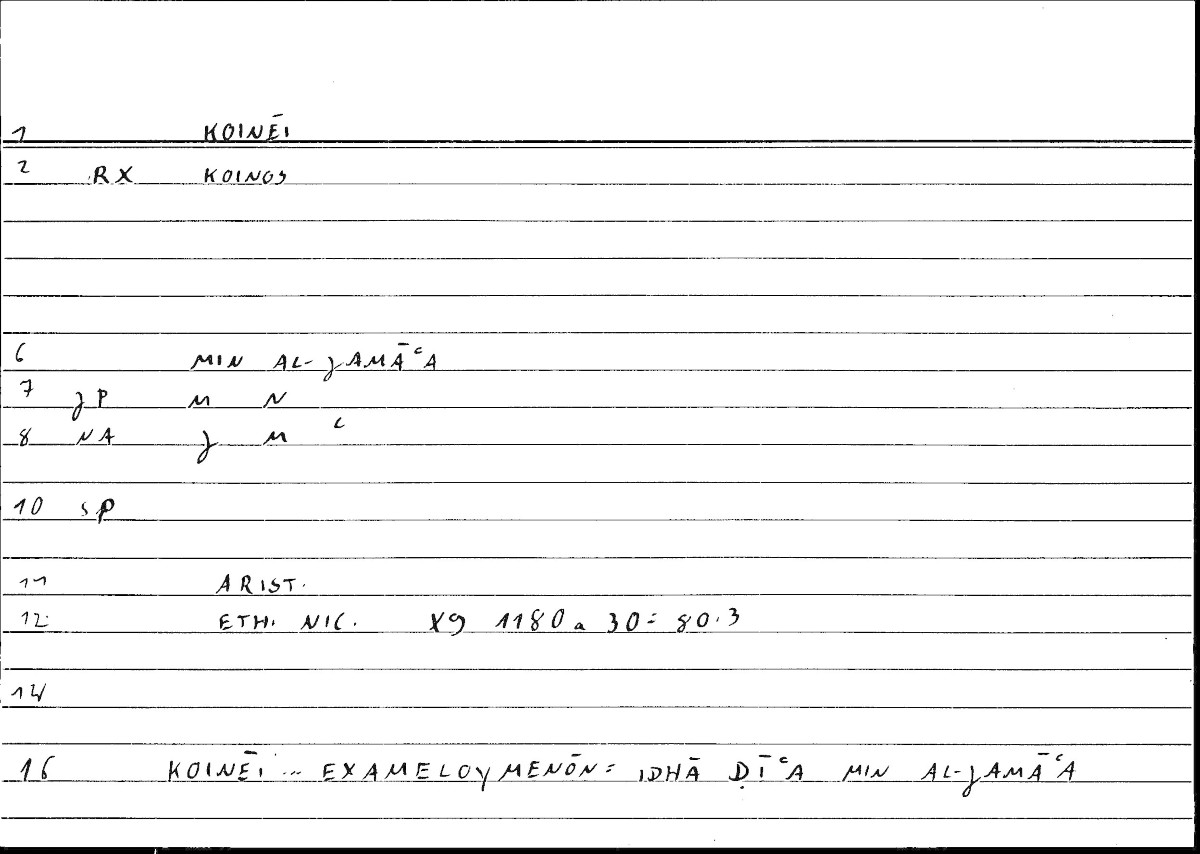 1 KOINĒI
2 RX KOINOS
6 MIN AL-JAMĀʿA
7 JP M N
8 NA J M ʿ
10 SP
11 ARIST.
12 ETH. NIC. X9 1180a 30 = 80.3
14
16 KOINĒI ... EXAMELOYMENŌN = IDHĀ ḌĪʿA MIN AL-JAMĀʿA